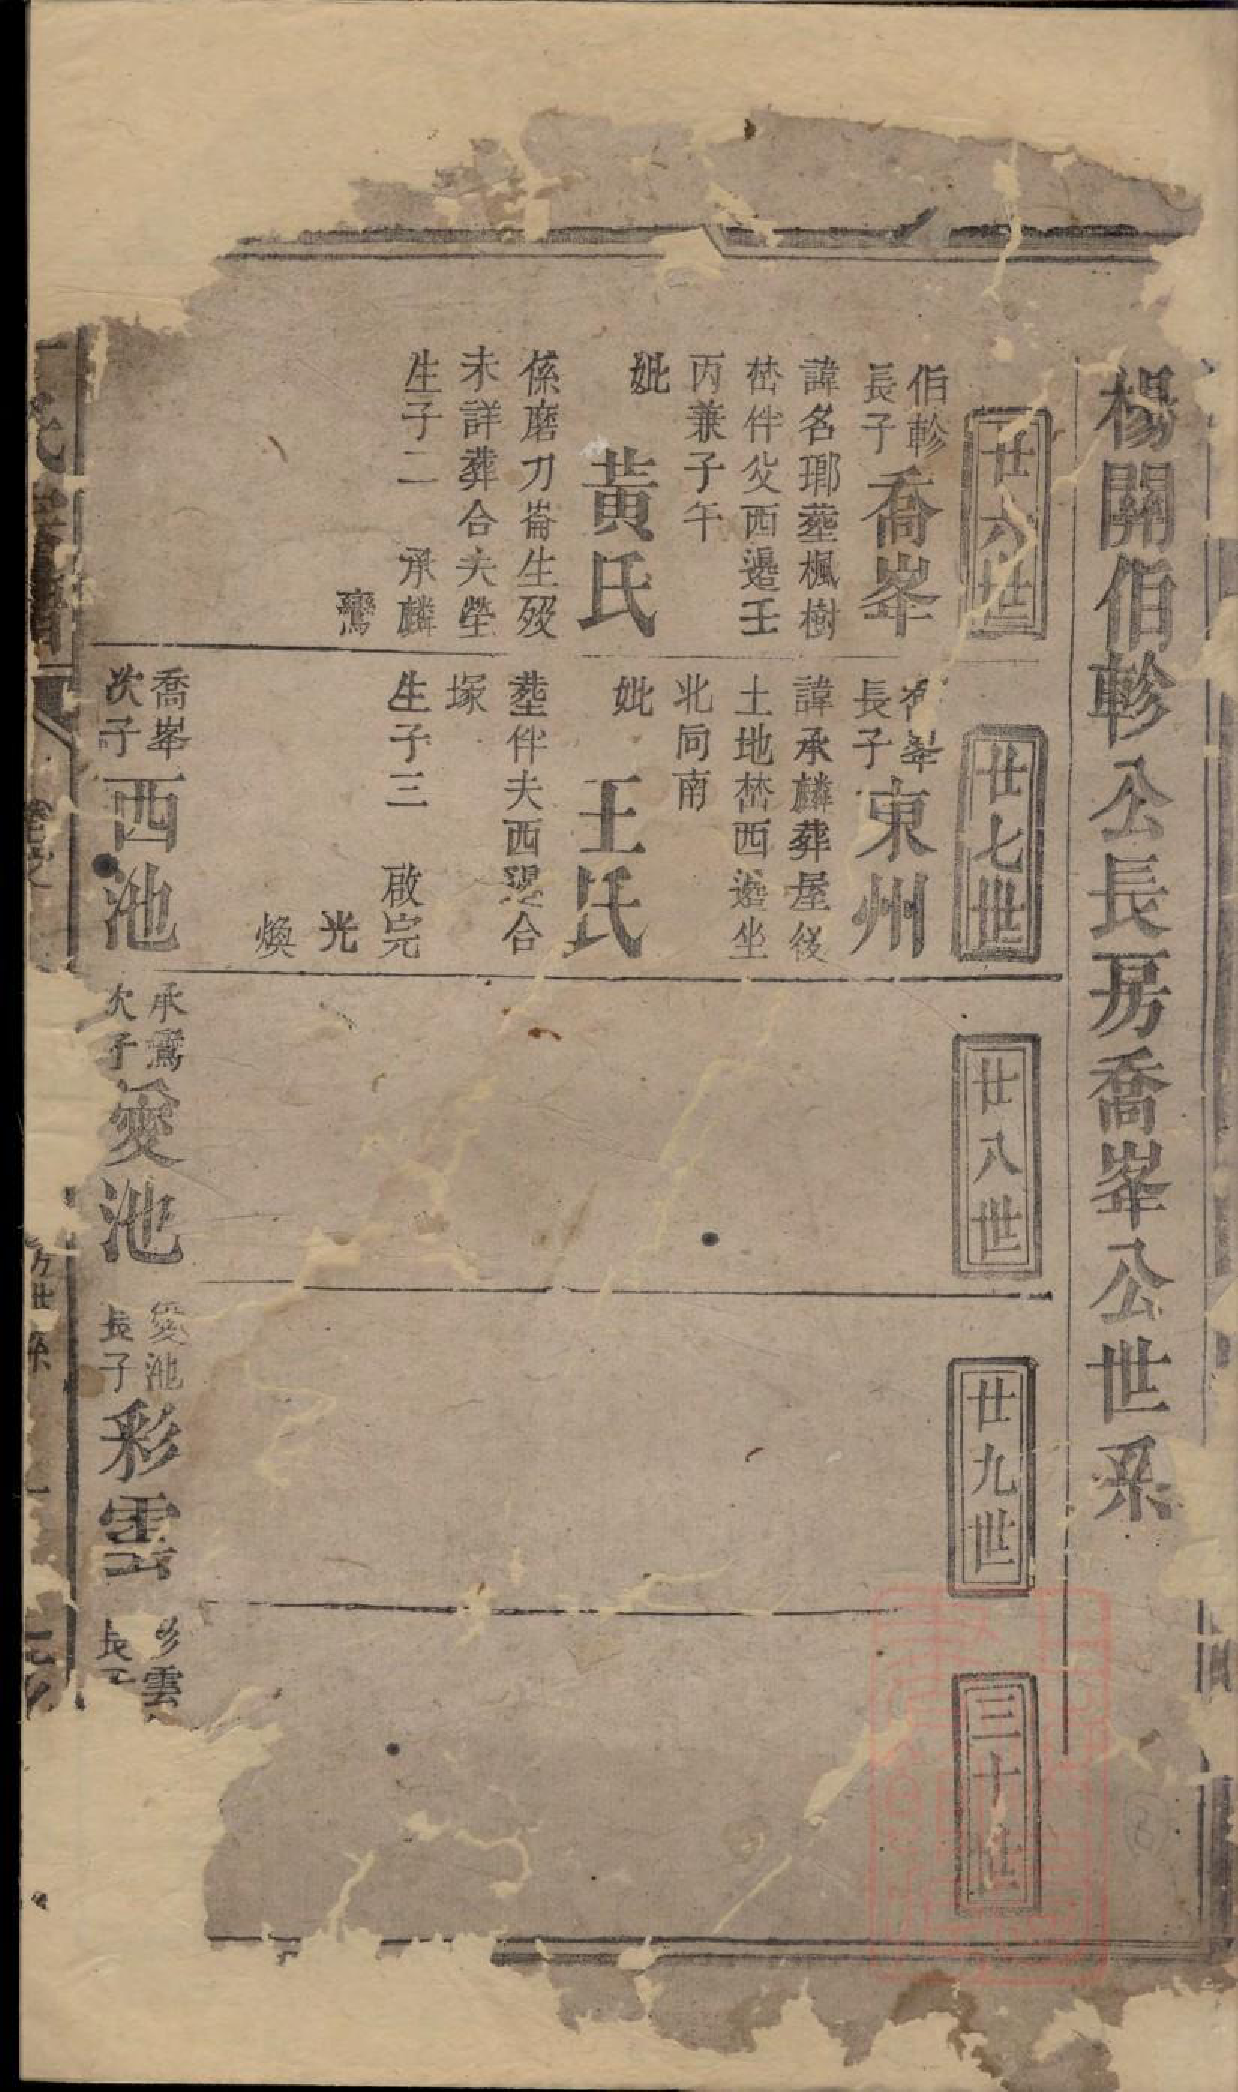 楊開伯軫公長房喬峯公世系
廿六世
伯軫
長子
喬峯
諱名瑯塟楓樹
嵆伴父西邊壬
丙兼子午
妣
黃氏
係磨刀崙生殁
未詳葬合夫塋
生子二 承麟
鸞
廿七世
喬峯
長子
東州
諱承麟葬屋後
土地嵆西邊坐
北向南
妣
王氏
塟伴夫西邊合
塚
生子三 啟完
光
煥
喬峯
次子
西池
廿八世
承鸞
次子
愛池
廿九世
愛池
長子
彩雲
三十世
彩雲
長子